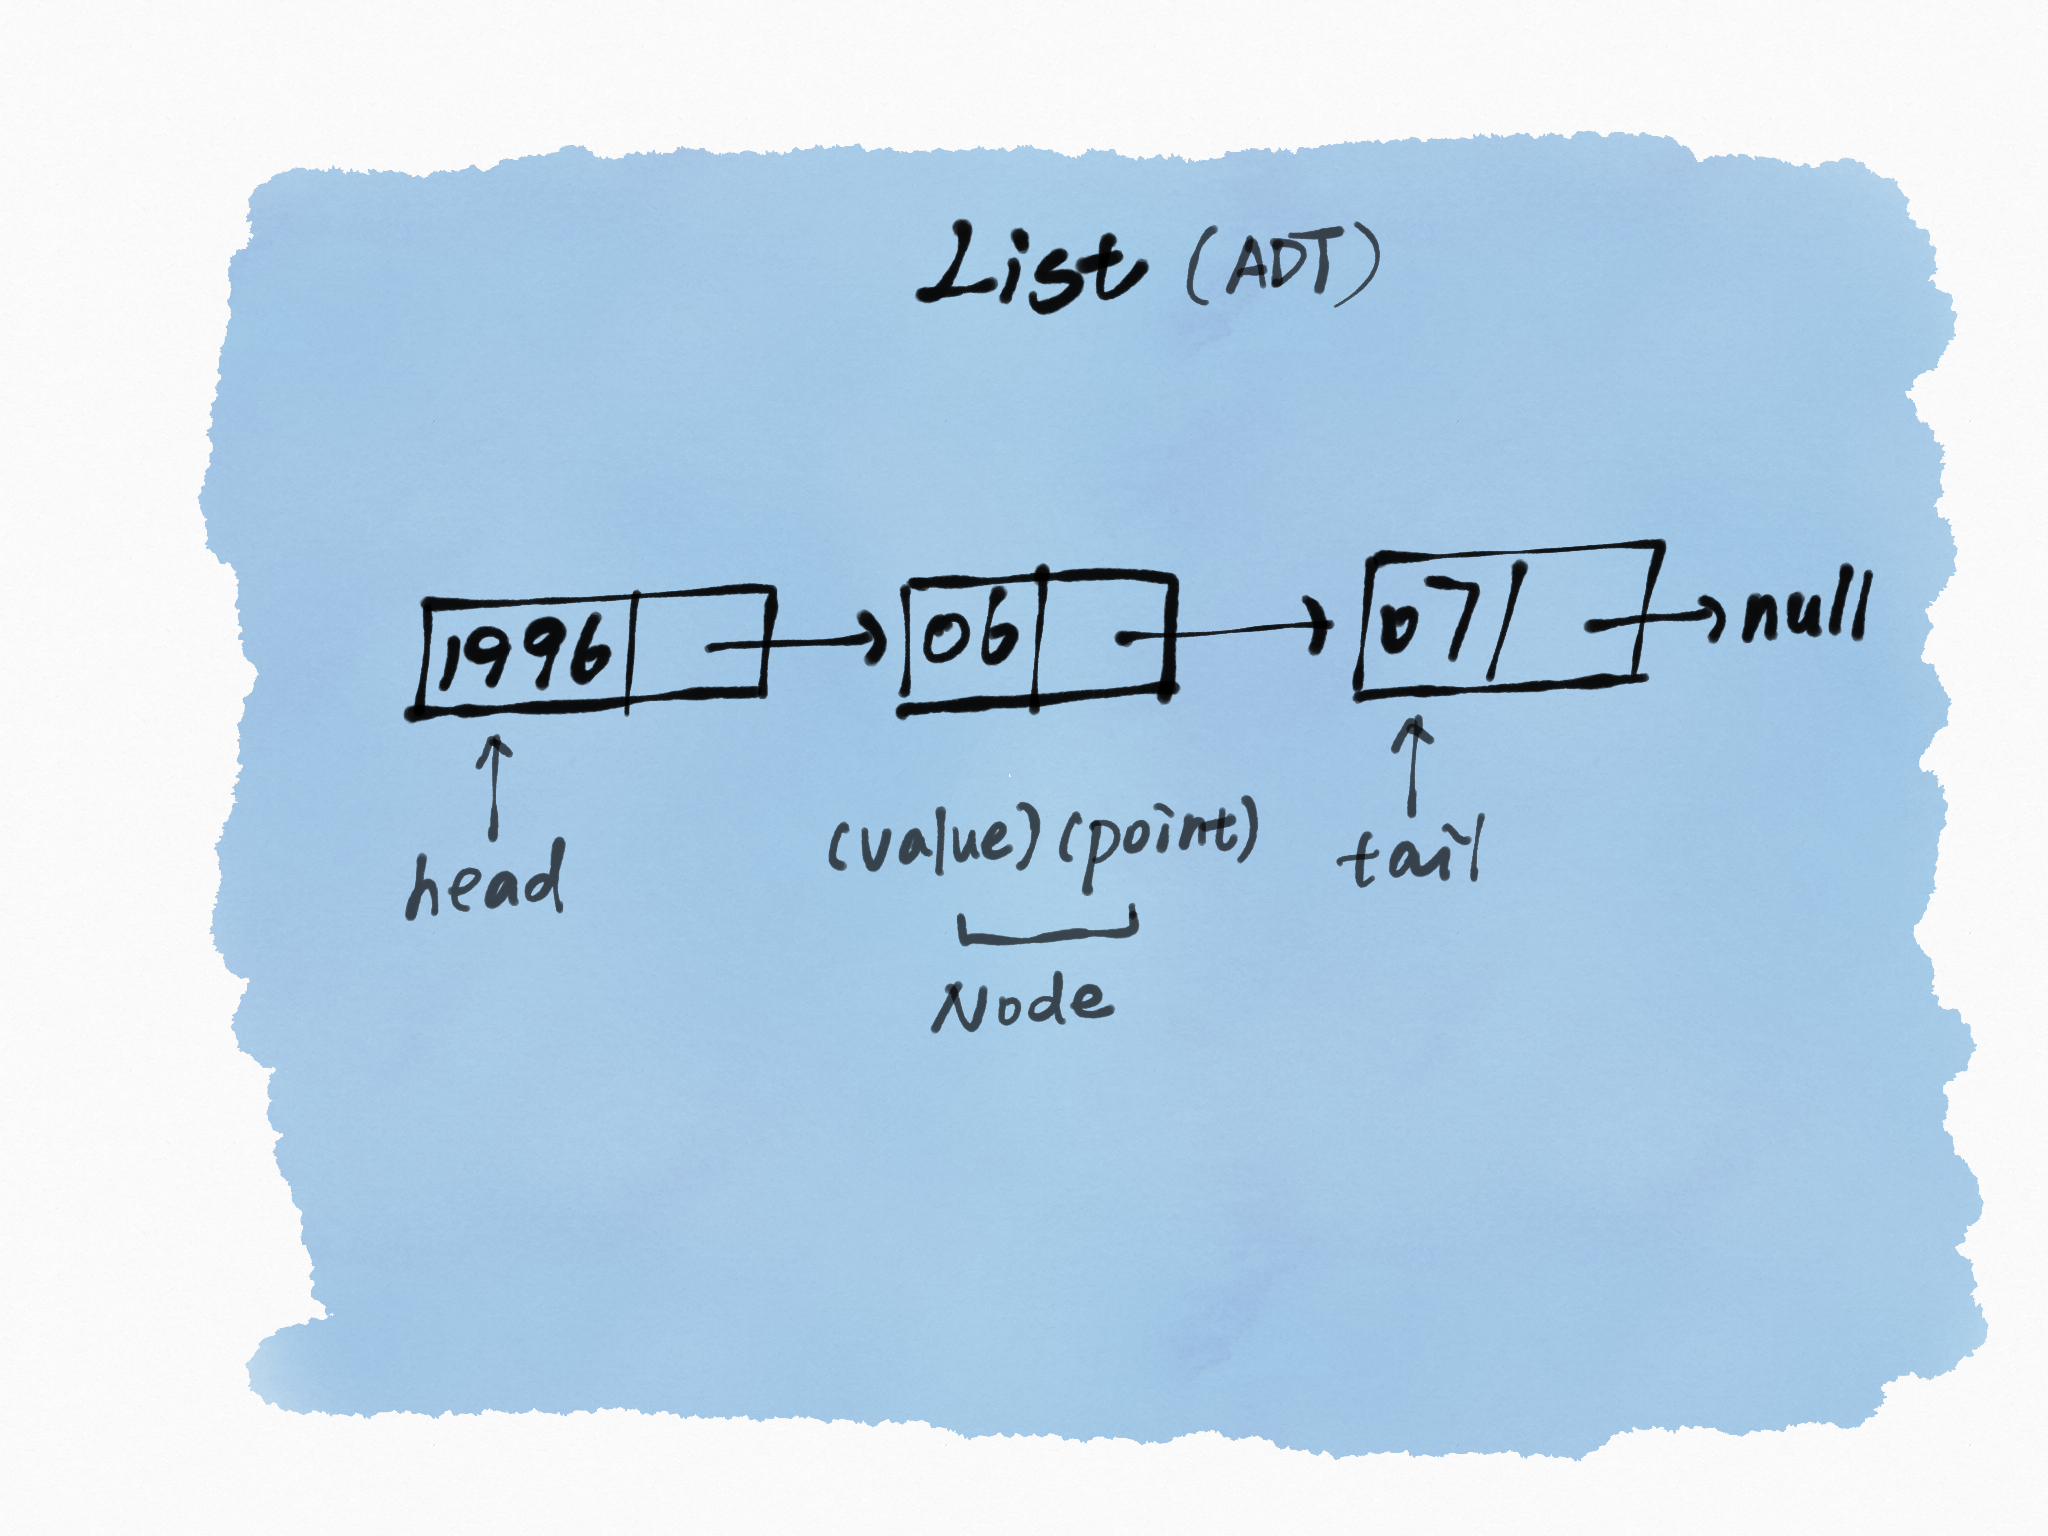 List (ADT)
1996 06 07 null
head (value) (point) tail
Node